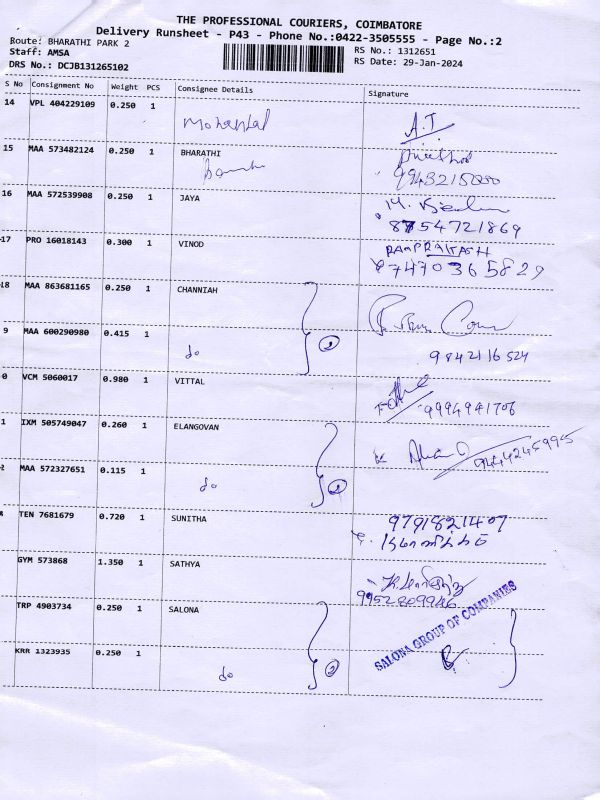 THE PROFESSIONAL COURIERS, COIMBATORE
Delivery Runsheet - P43 - Phone No.:0422-3505555 - Page No.:2
Route: BHARATHI PARK 2
Staff: AMSA
DRS No.: DCJB131265102
RS No.: 1312651
RS Date: 29-Jan-2024
S No Consignment No Weight PCS Consignee Details Signature
14 VPL 404229109 0.250 1
A.J
15 MAA 573482124 0.250 1 BHARATHI
16 MAA 572539908 0.250 1 JAYA
8754721869
17 PRO 16018143 0.300 1 VINOD RAMPRAKASH
87470365829
18 MAA 863681165 0.250 1 CHANNIAH
9 MAA 600290980 0.415 1 do 2 9842116524
0 VCM 5060017 0.980 1 VITTAL
9994941706
1 IXM 505749047 0.260 1 ELANGOVAN
9444245995
2 MAA 572327651 0.115 1 do 2
TEN 7681679 0.720 1 SUNITHA 9791821407
GYM 573868 1.350 1 SATHYA
TRP 4903734 0.250 1 SALONA SALONA GROUP OF COMPANIES
KRR 1323935 0.250 1 do 2